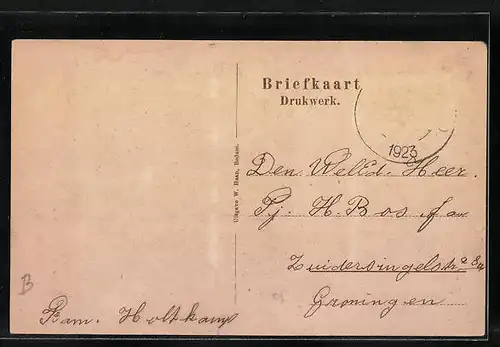 Briefkaart
Drukwerk.
1923
Den WelEd. Heer.
H. Bos
Zuidersingelstr
Groningen
Uitgave W. Haan, 
B
Fam. Holtkamp